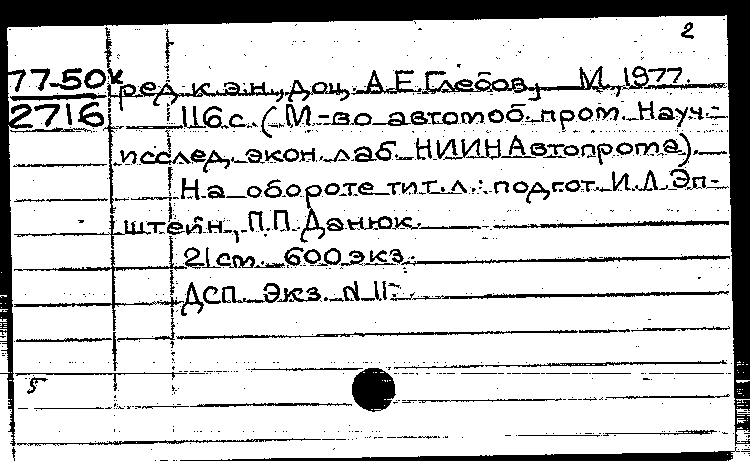 2
77-50к ред. к.э.н., доц. А.Е.Глебов, М., 1977.
2716 116с. (М-во автомоб. пром. Науч.-
исслед. экон. лаб. НИИНАвтопрома).
На обороте тит.л.: подгот. И.Л.Эп-
штейн, П.П.Данюк.
21см. 600экз.
ДСП. Экз. N 11: